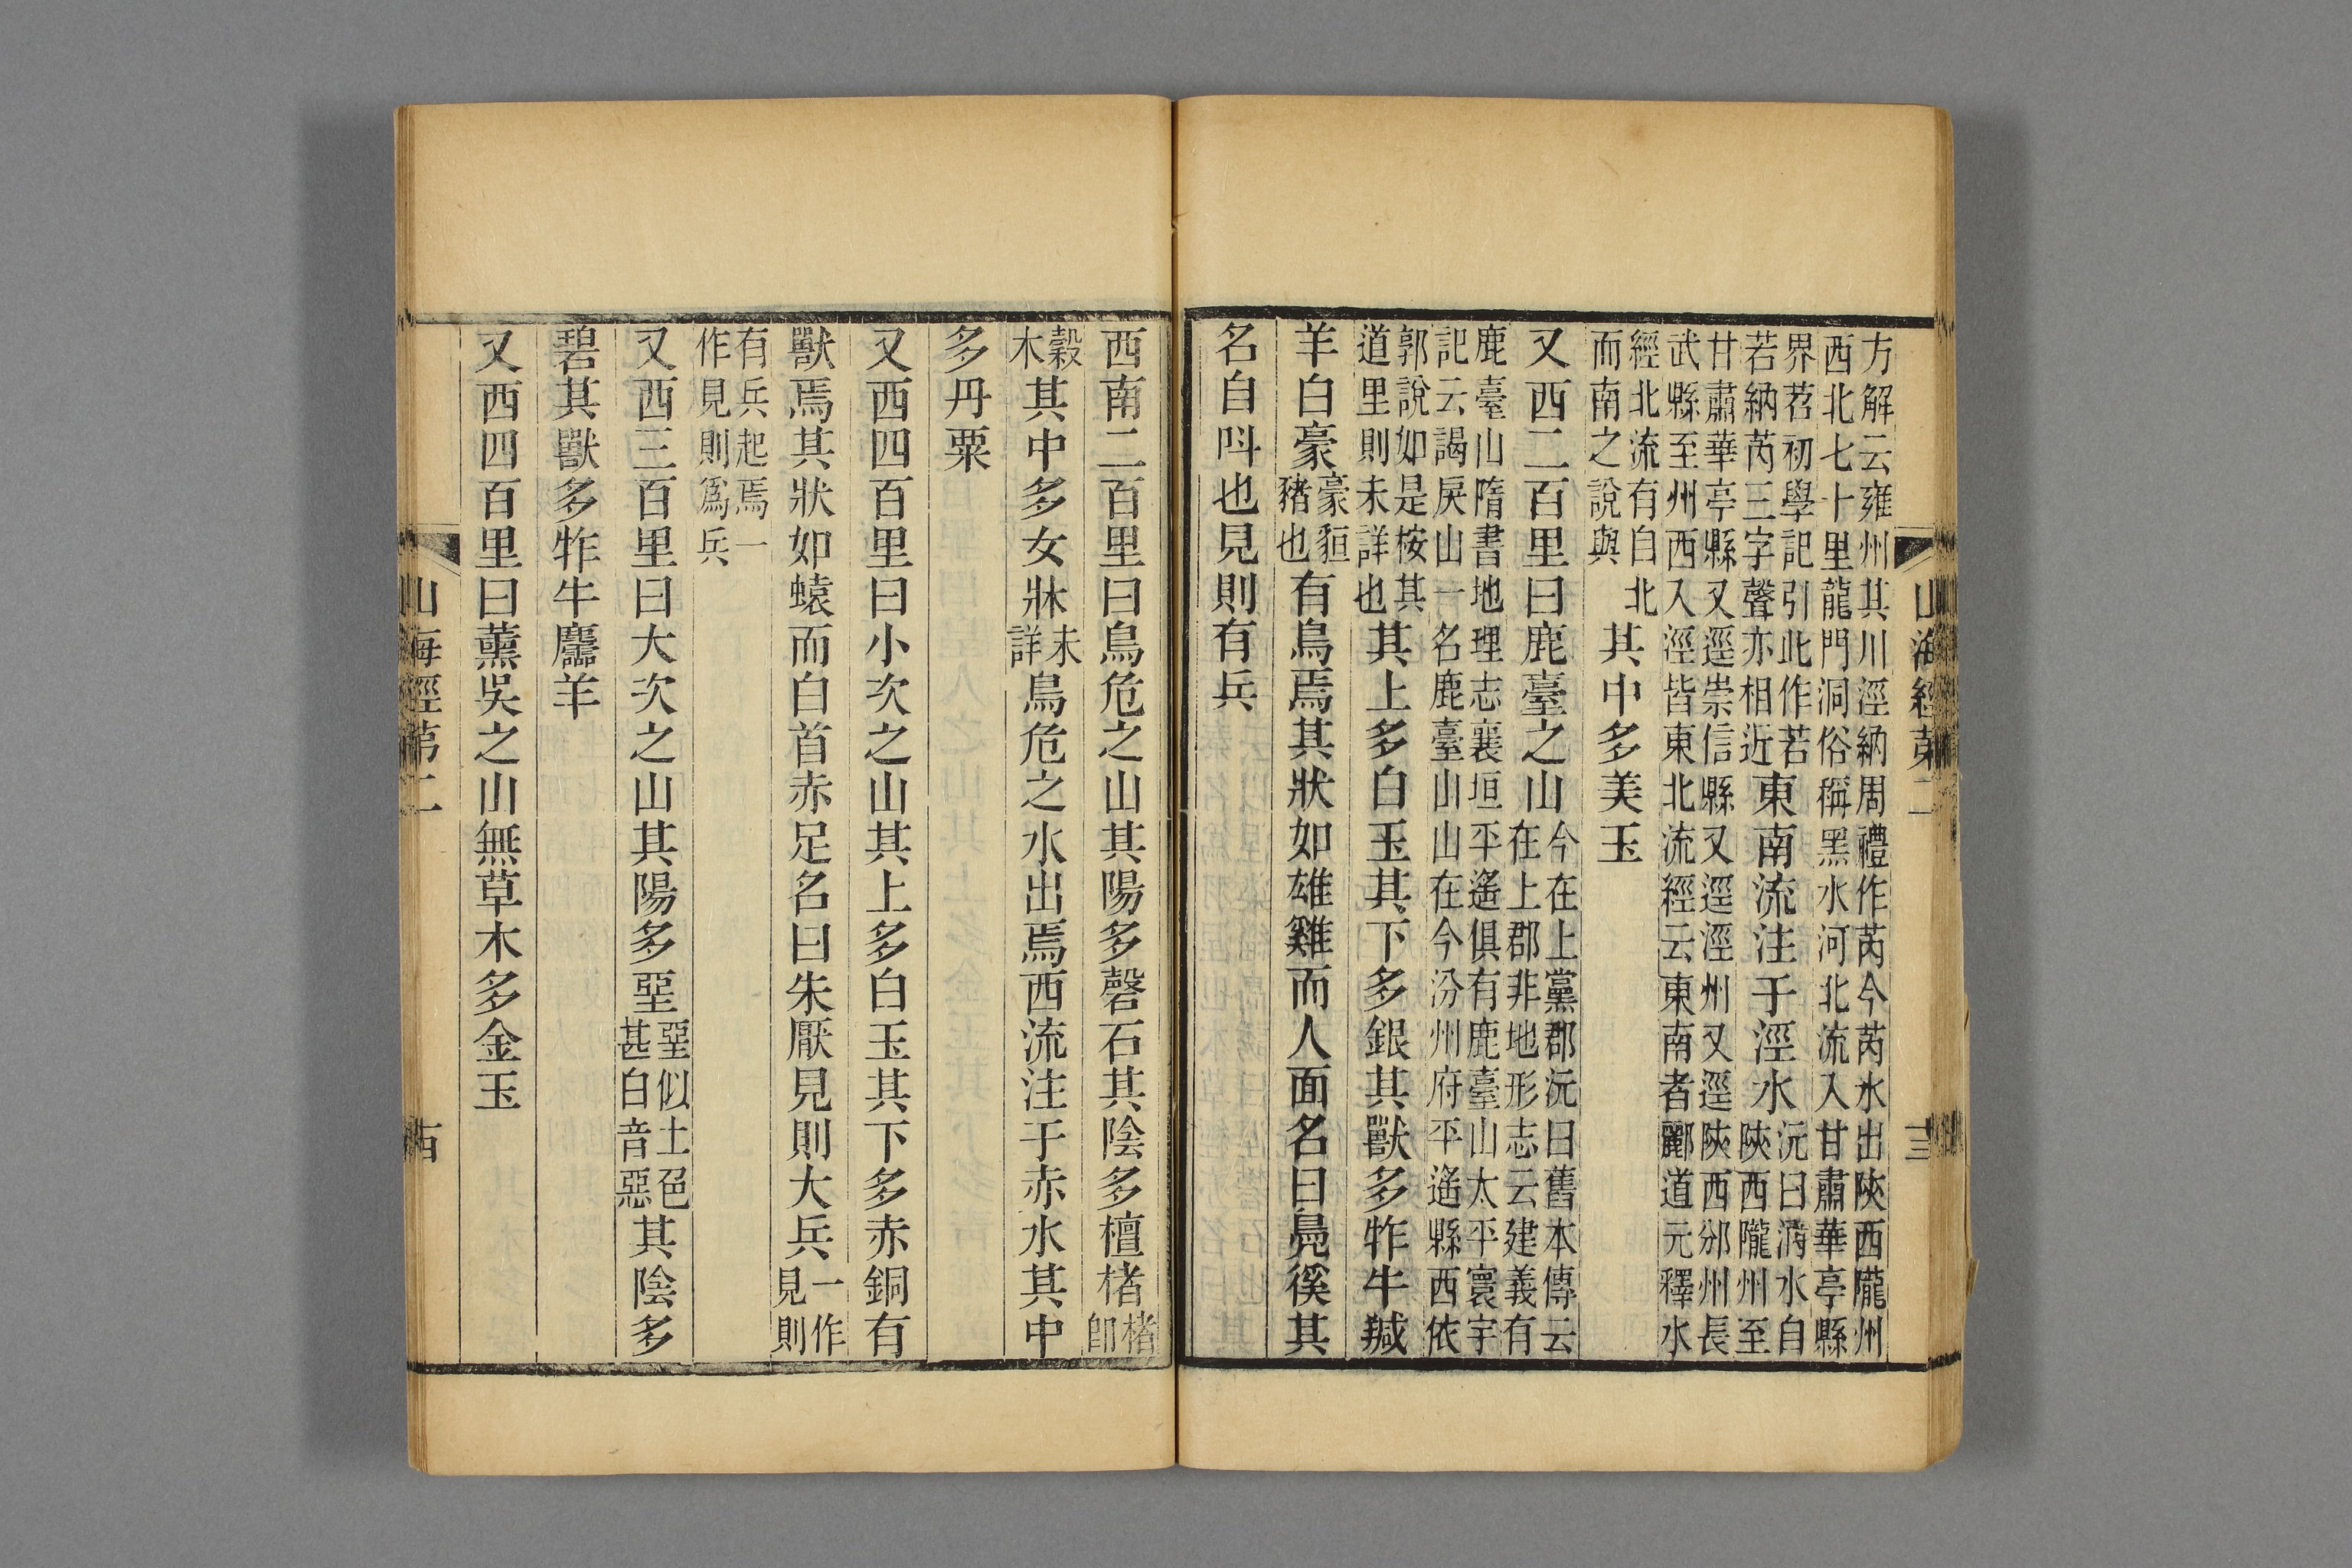 山海經第二
十三
方解云雍州其川涇納周禮作芮今芮水出陝西隴州
西北七十里龍門洞俗稱黑水河北流入甘肅華亭縣
界苕初學記引此作若
若納芮三字聲亦相近
東南流注于涇水
沅曰水自
陝西隴州至
甘肅華亭縣又逕崇信縣又逕涇州又逕陝西邠州長
武縣至州西入涇皆東北流經云東南者酈道元釋水
經北流有自北
而南之說與
其中多美玉
又西二百里曰鹿臺之山
今在上黨郡沅曰舊本傳云
在上郡非地形志云建義有
鹿臺山隋書地理志襄垣平遙俱有鹿臺山太平寰宇
記云謁戾山一名鹿臺山山在今汾州府平遙縣西依
郭說如是桉其
道里則未詳也
其上多白玉其下多銀其獸多㸲牛羬
羊白豪
豪貆
豬也
有鳥焉其狀如雄雞而人面名曰鳧徯其
名自叫也見則有兵
西南二百里曰鳥危之山其陽多磬石其陰多檀楮
楮卽
榖木
其中多女牀
未詳
鳥危之水出焉西流注于赤水其中
多丹粟
又西四百里曰小次之山其上多白玉其下多赤銅有
獸焉其狀如蝯而白首赤足名曰朱厭見則大兵
一作
見則
有兵起焉一
作見則爲兵
又西三百里曰大次之山其陽多堊
堊似土色
甚白音惡
其陰多
碧其獸多㸲牛麢羊
又西四百里曰薰吳之山無草木多金玉
山海經第二
十四